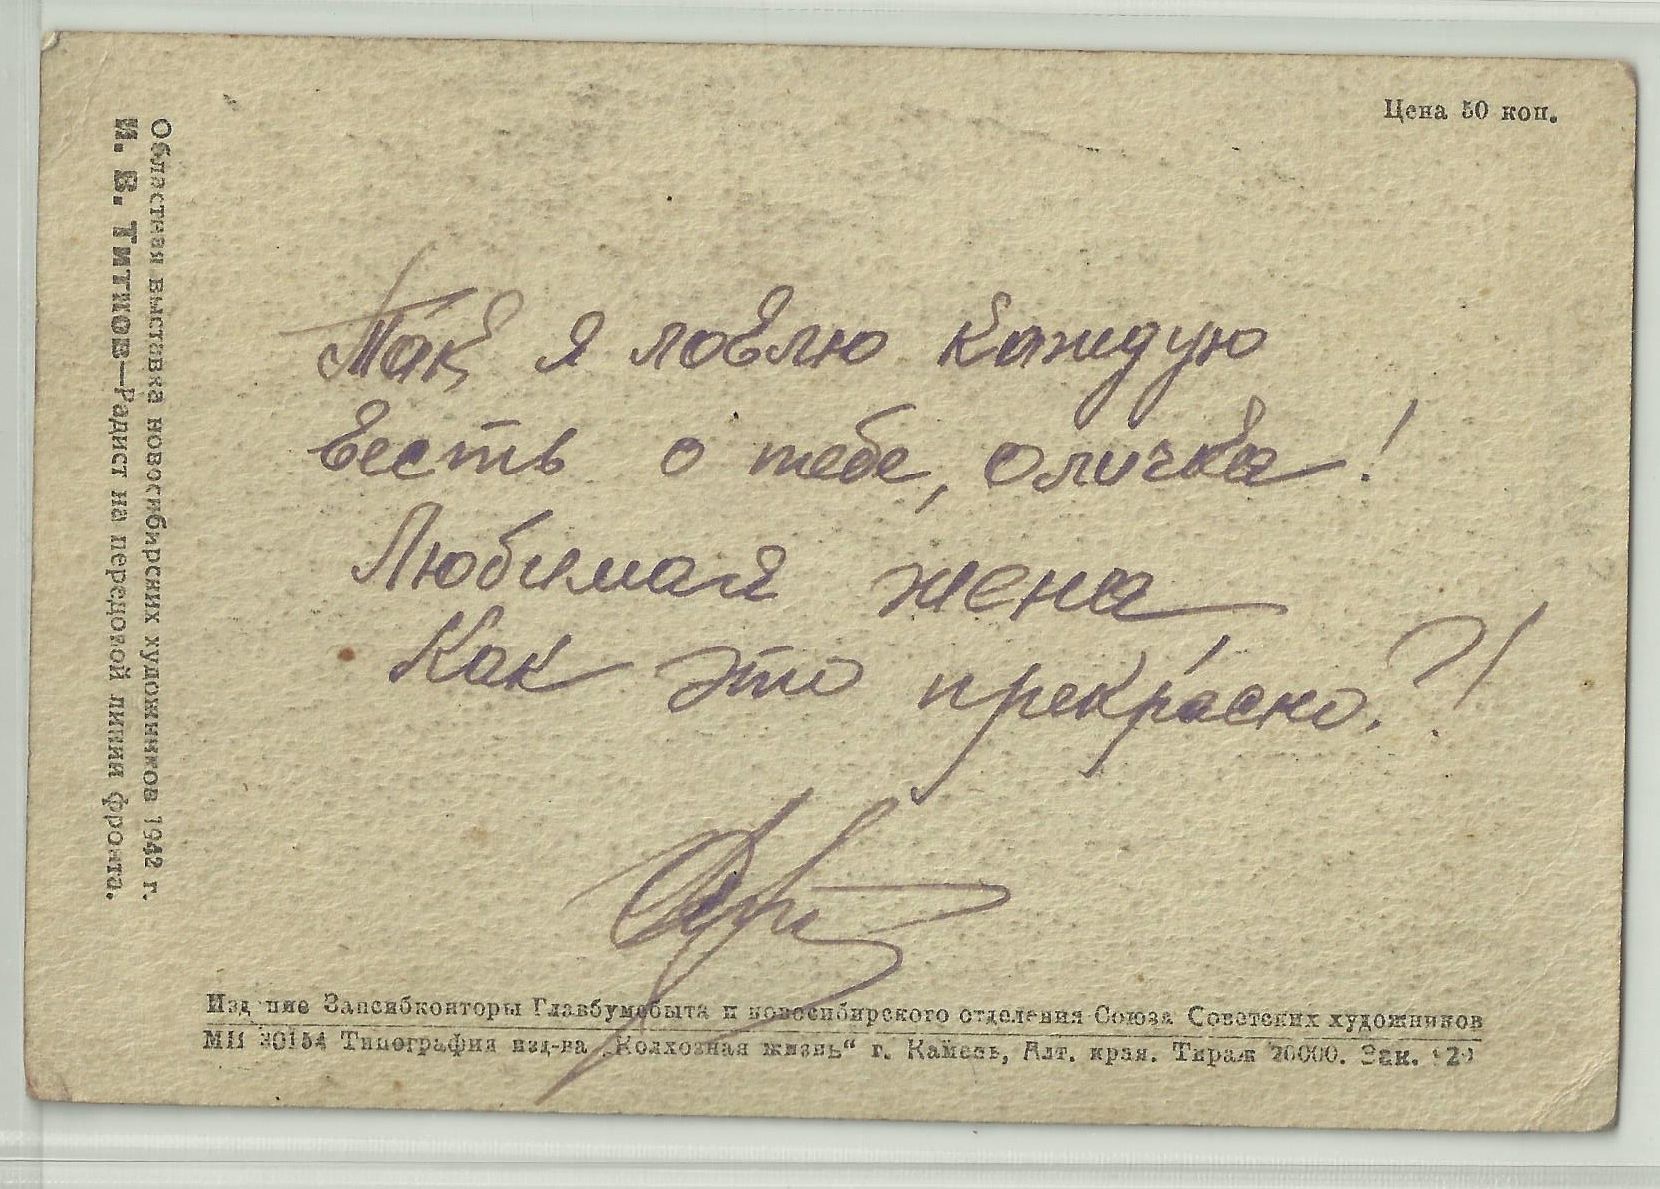 Цена 50 коп.
Областная выставка новосибирских художников 1942 г.
И. В. Титков—Радист на передовой линии фронта.
Так я ловлю каждую
весть о тебе, Оличка!
Любимая жена
Как это прекрасно.?!
Издание Запсибконторы Главбумсбыта и новосибирского отделения Союза Советских художников
МП 20154 Типография изд-ва „Колхозная жизнь“ г. Камень, Алт. края. Тираж 20000. Зак.